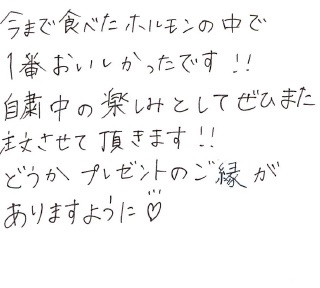 今まで食べたホルモンの中で
1番おいしかったです!!
自粛中の楽しみとしてぜひまた
注文させて頂きます!!
どうかプレゼントのご縁が
ありますように♡